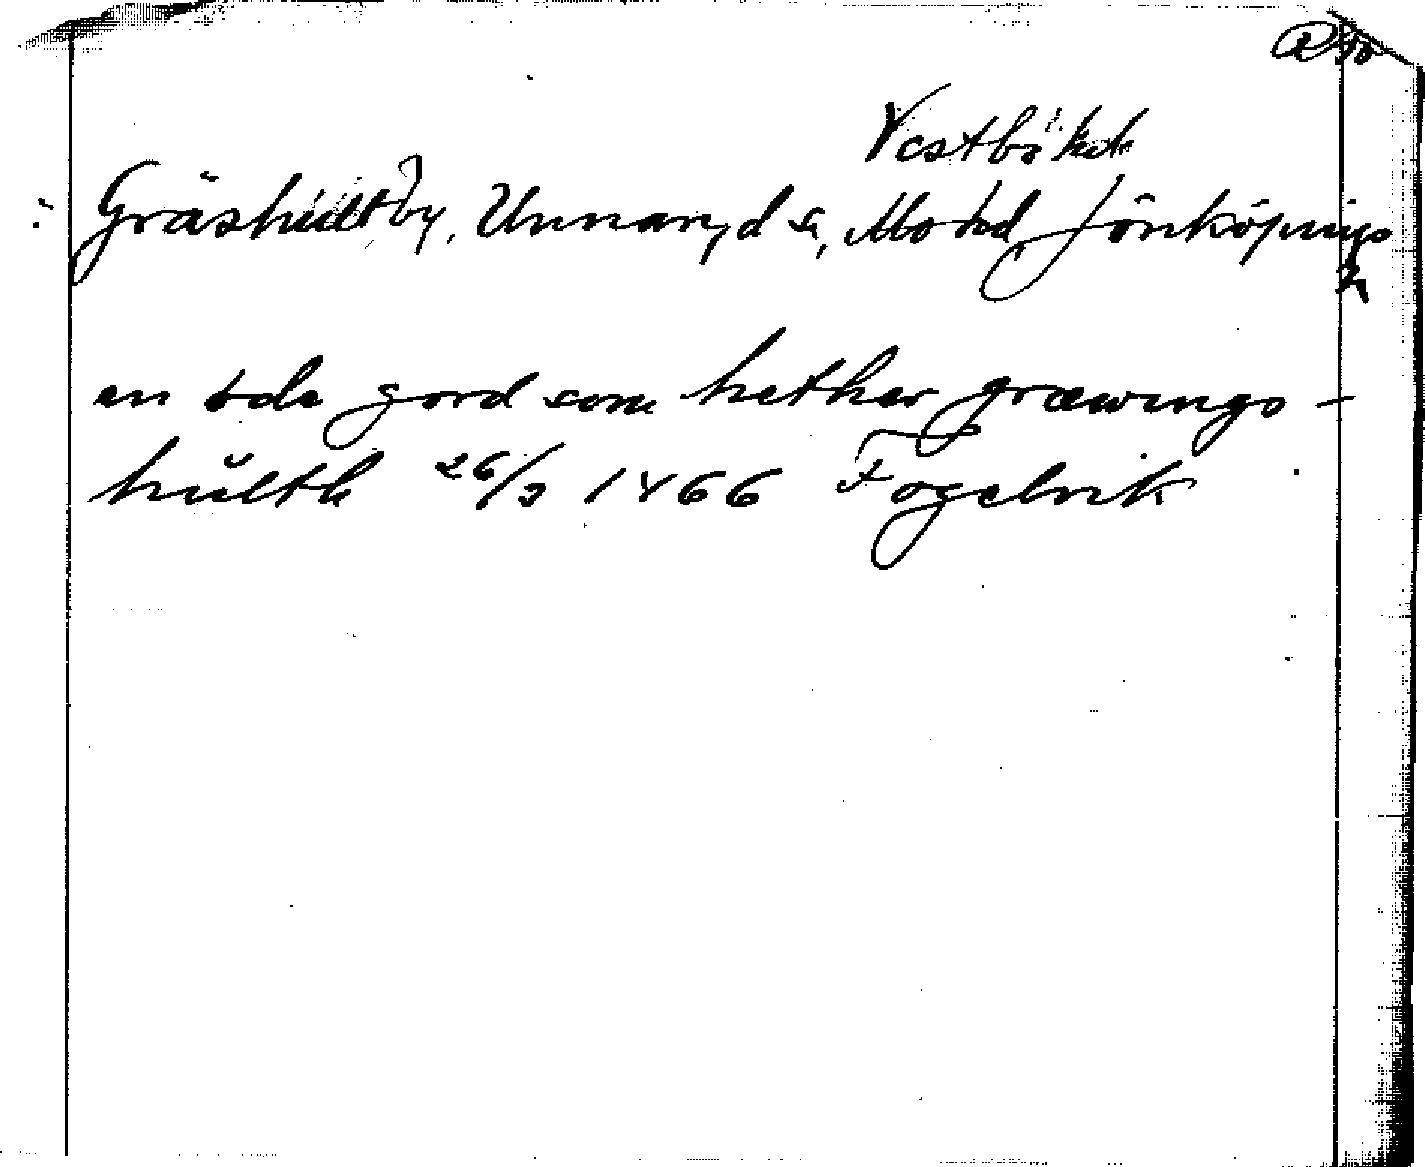 Vestbo hd
: Gräshult by, Unnaryd sn, Mo hd, Jönköpings
en øde gord som hether græwings-
hŭlth 26/3 1466 Fogelvik